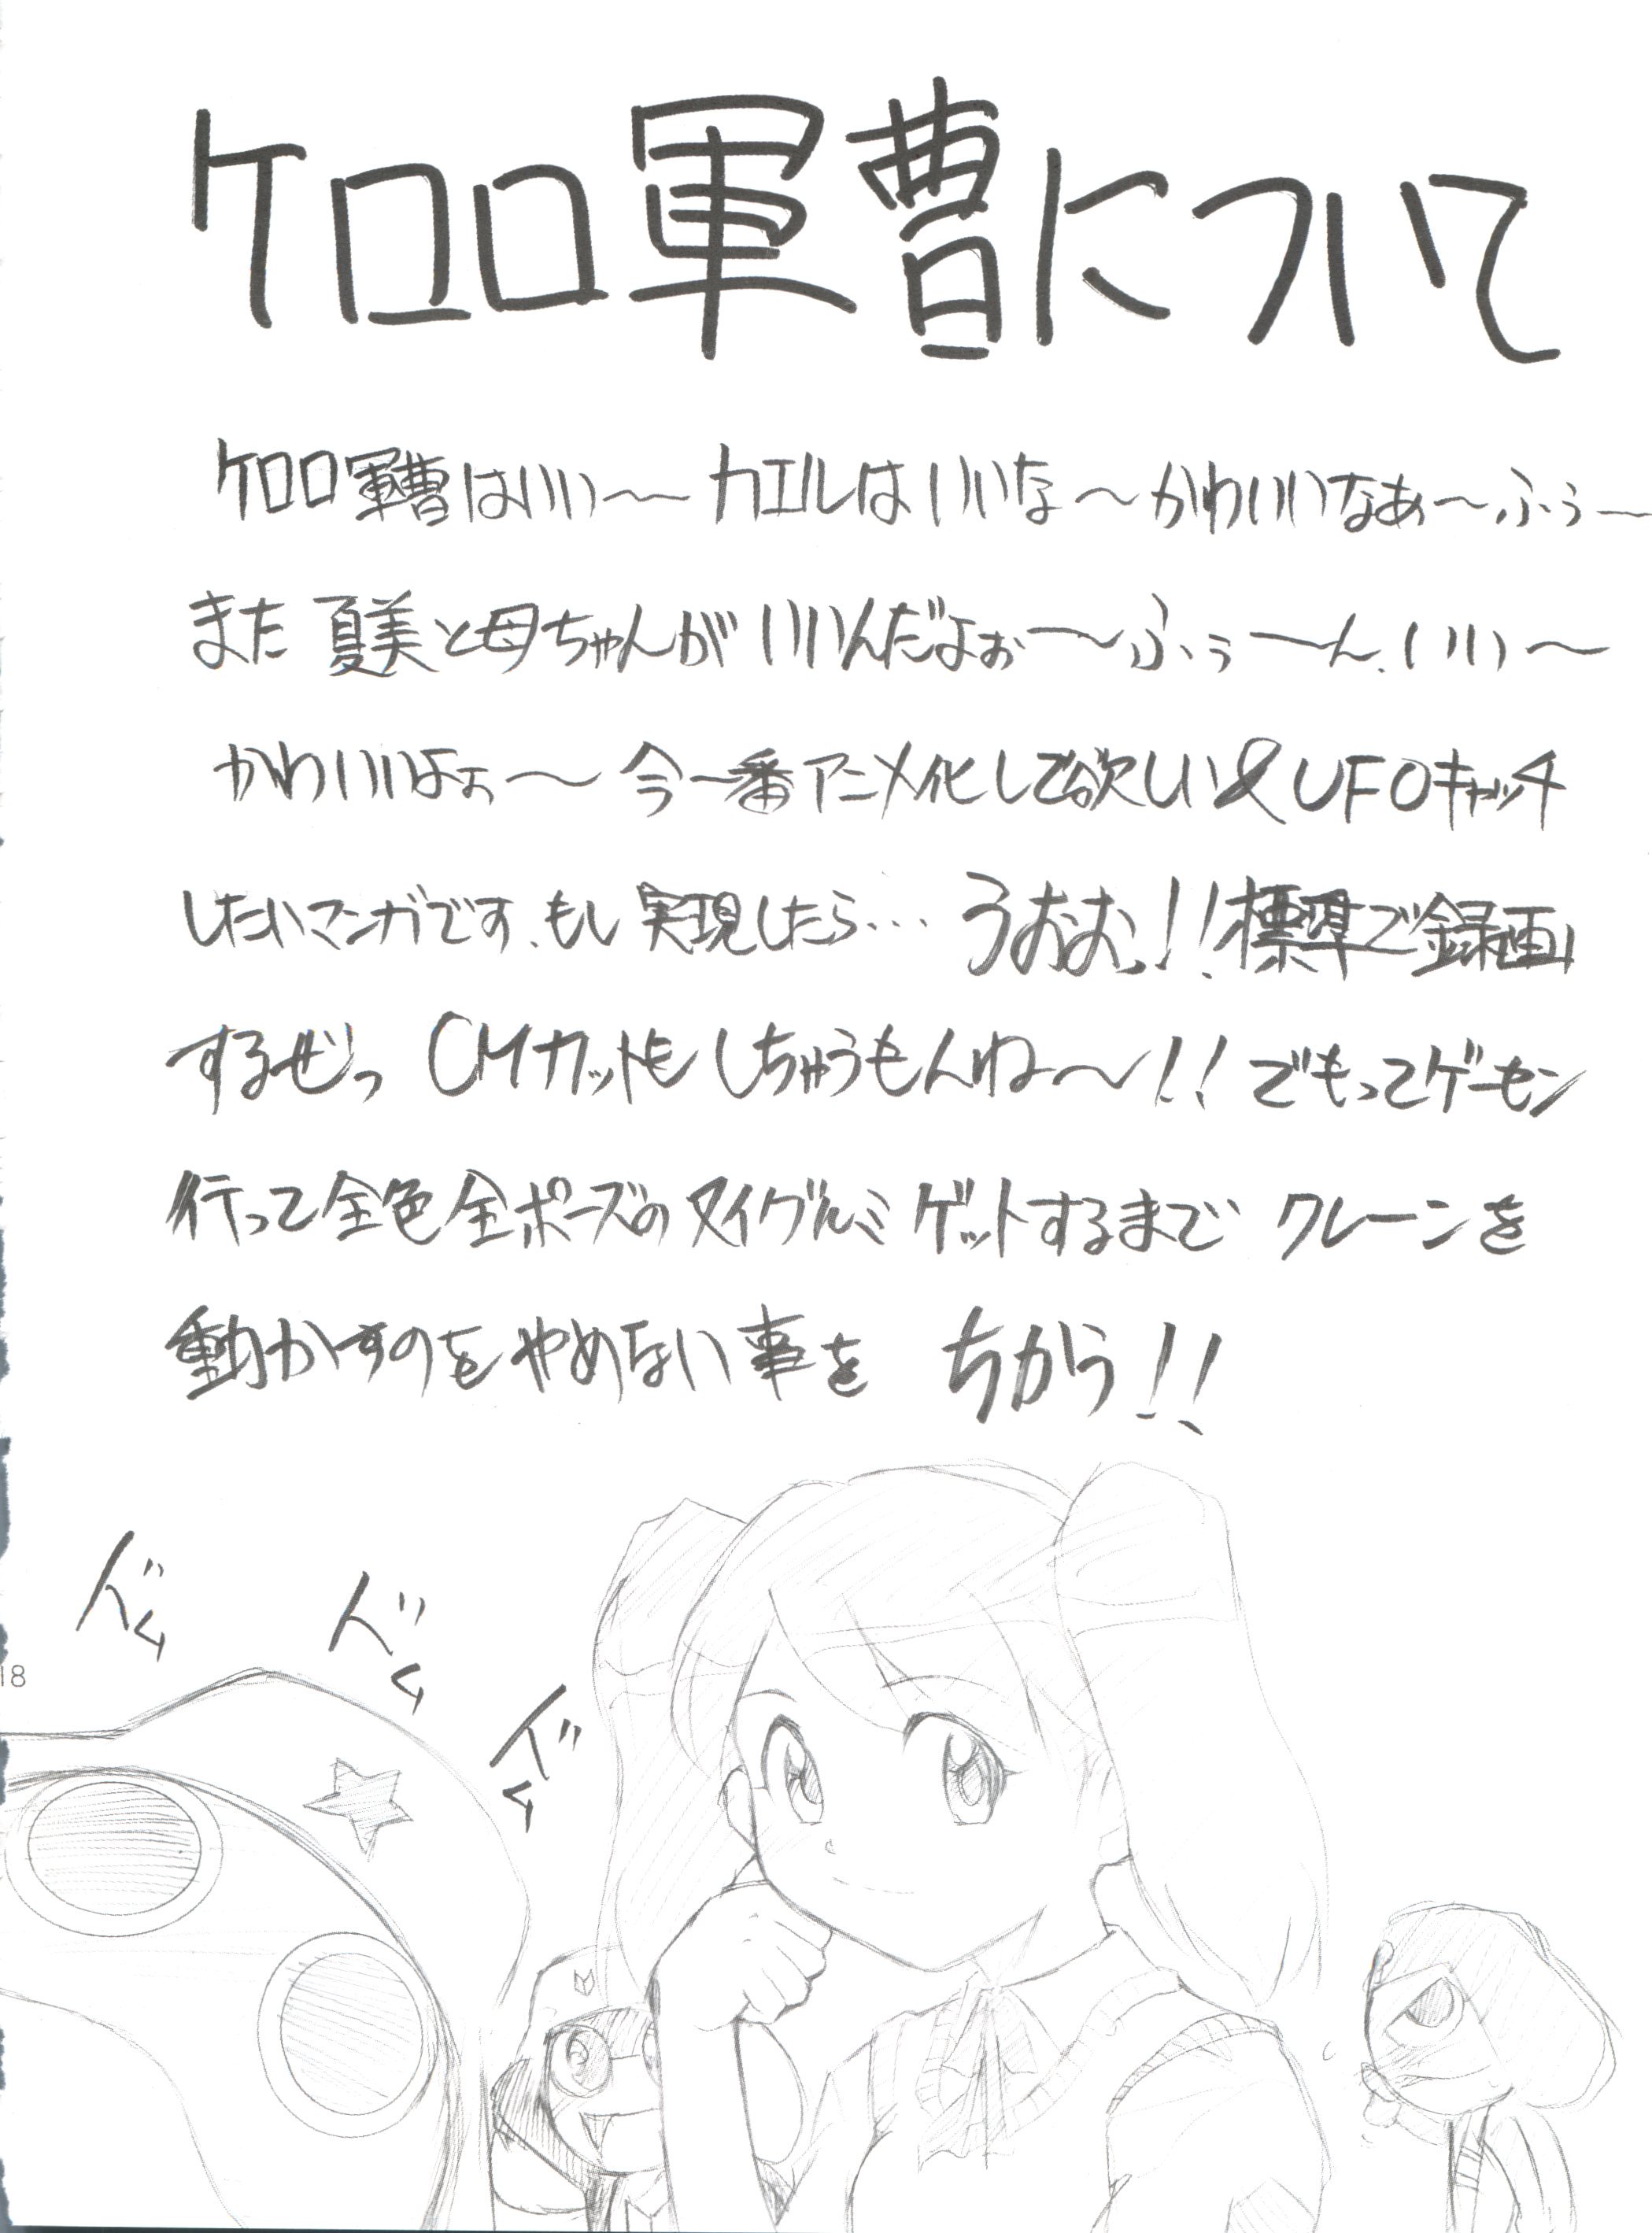 ケロロ軍曹について
ケロロ軍曹はいい〜〜カエルはいいな〜かわいいなあ〜ふぅ〜
また夏美と母ちゃんがいいんだよぉ〜ふぅ〜ん、いい〜
かわいいよぉ〜今一番アニメ化して欲しい&UFOキャッチ
したいマンガです、もし実現したら…うおおっ!!標準で録画
するぜっ CMカットもしちゃうもんね〜!!でもってゲーセン
行って全色全ポーズのヌイグルミゲットするまでクレーンを
動かすのをやめない事をちかう!!
ドく
ドく
ドく
18